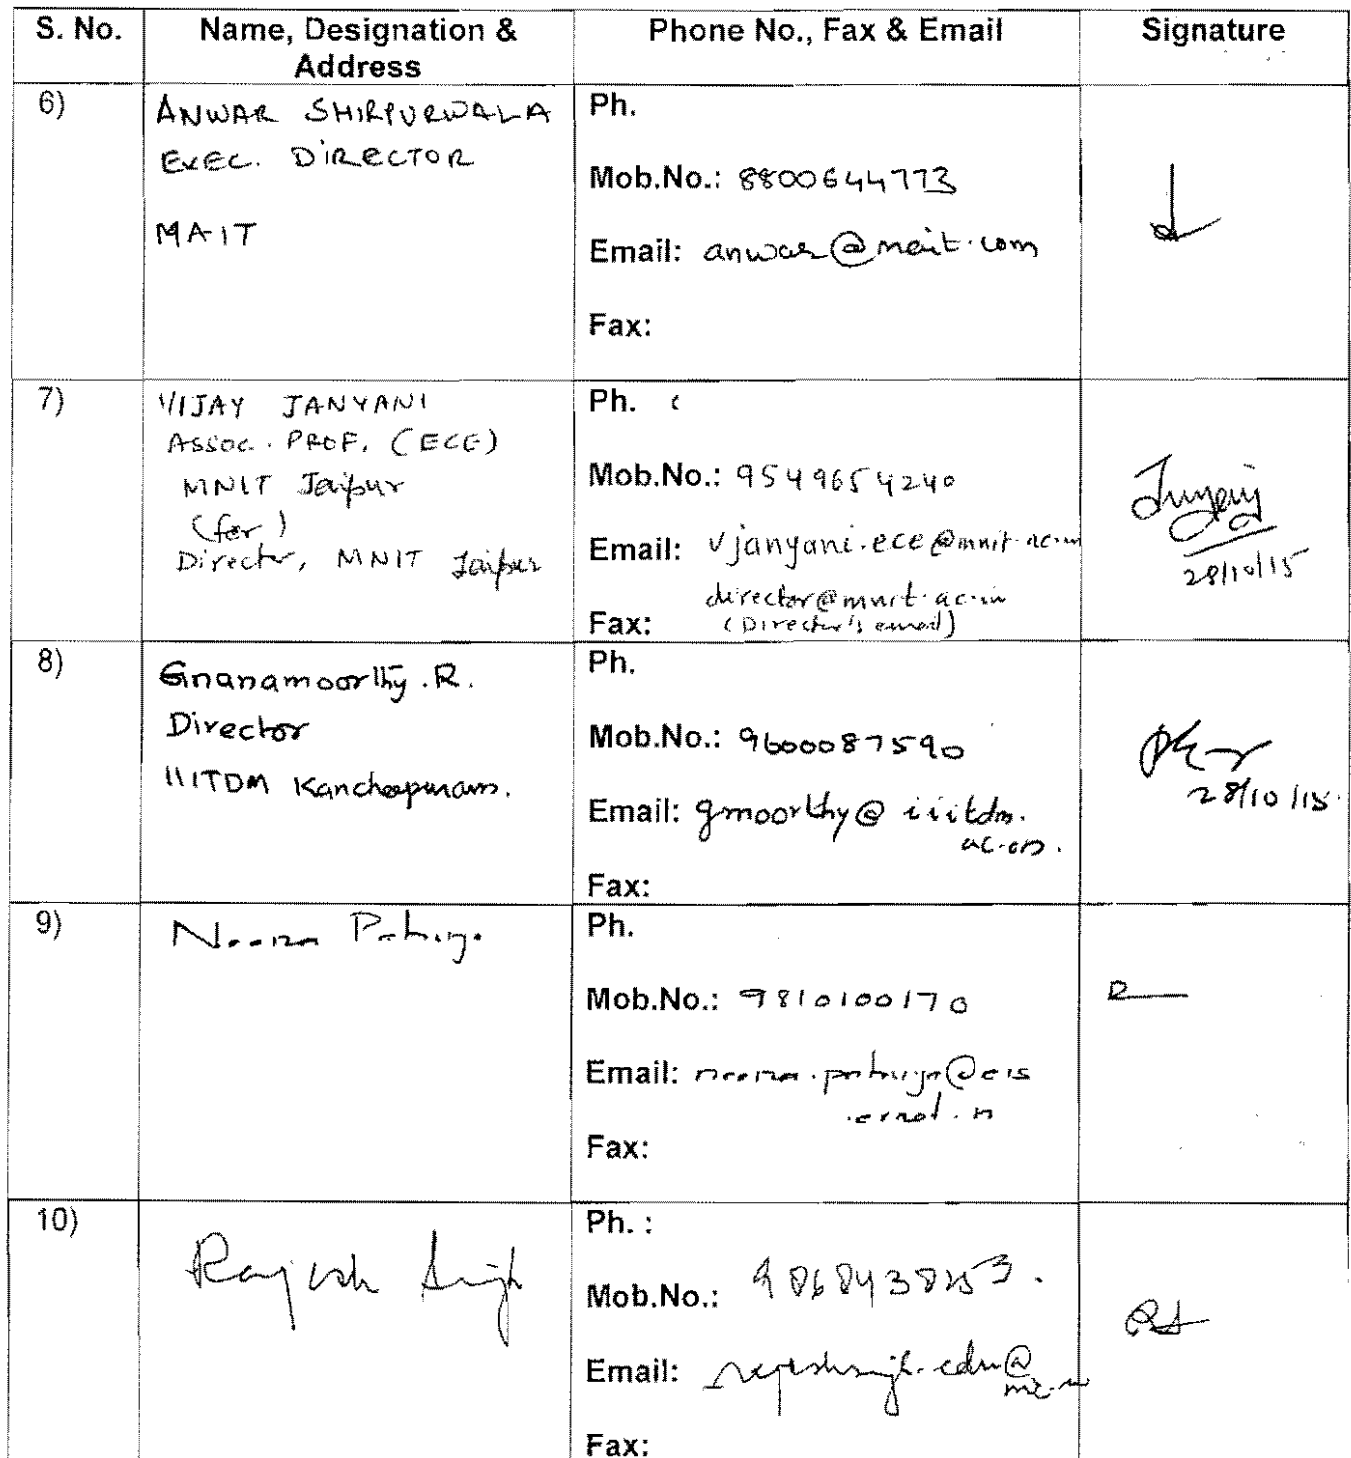 S. No.
Name, Designation &
Address
Phone No., Fax & Email
Signature
6)
ANWAR SHIRPURWALA
EXEC. DIRECTOR
MAIT
Ph.
Mob.No.: 8800644773
Email: anwar@mait.com
Fax:
7)
VIJAY JANYANI
ASSOC. PROF. (ECE)
MNIT Jaipur
(for)
Director, MNIT Jaipur
Ph.
Mob.No.: 9549654240
Email: vjanyani.ece@mnit.ac.in
director@mnit.ac.in
Fax: (Director's email)
28/10/15
8)
Gnanamoorthy.R.
Director
IIITDM Kancheepuram.
Ph.
Mob.No.: 9600087590
Email: gmoorthy@iiitdm.
ac.in.
Fax:
28/10/15.
9)
Neena Pahuja
Ph.
Mob.No.: 9810100170
Email: neena.pahuja@cis
.ernet.in
Fax:
10)
Rajesh Singh
Ph. :
Mob.No.: 9868438253.
Email:
Fax: